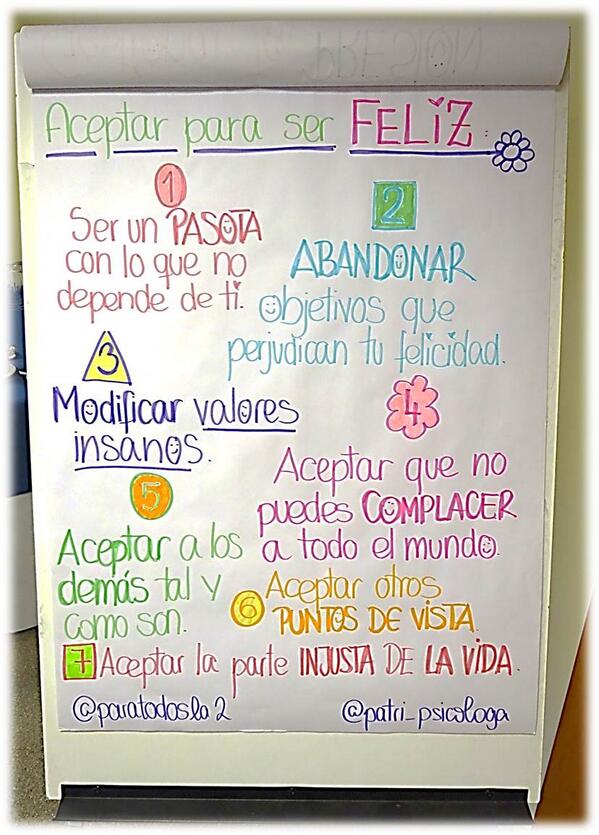 PRESIÓN
Aceptar para ser FELIZ:
1
Ser un PASOTA
con lo que no
depende de ti.
2
ABANDONAR
objetivos que
perjudican tu felicidad.
3
Modificar valores
insanos.
4
Aceptar que no
puedes COMPLACER
a todo el mundo.
5
Aceptar a los
demás tal y
como son.
6 Aceptar otros
PUNTOS DE VISTA.
7 Aceptar la parte INJUSTA DE LA VIDA.
@paratodosla2 @patri_psicologa